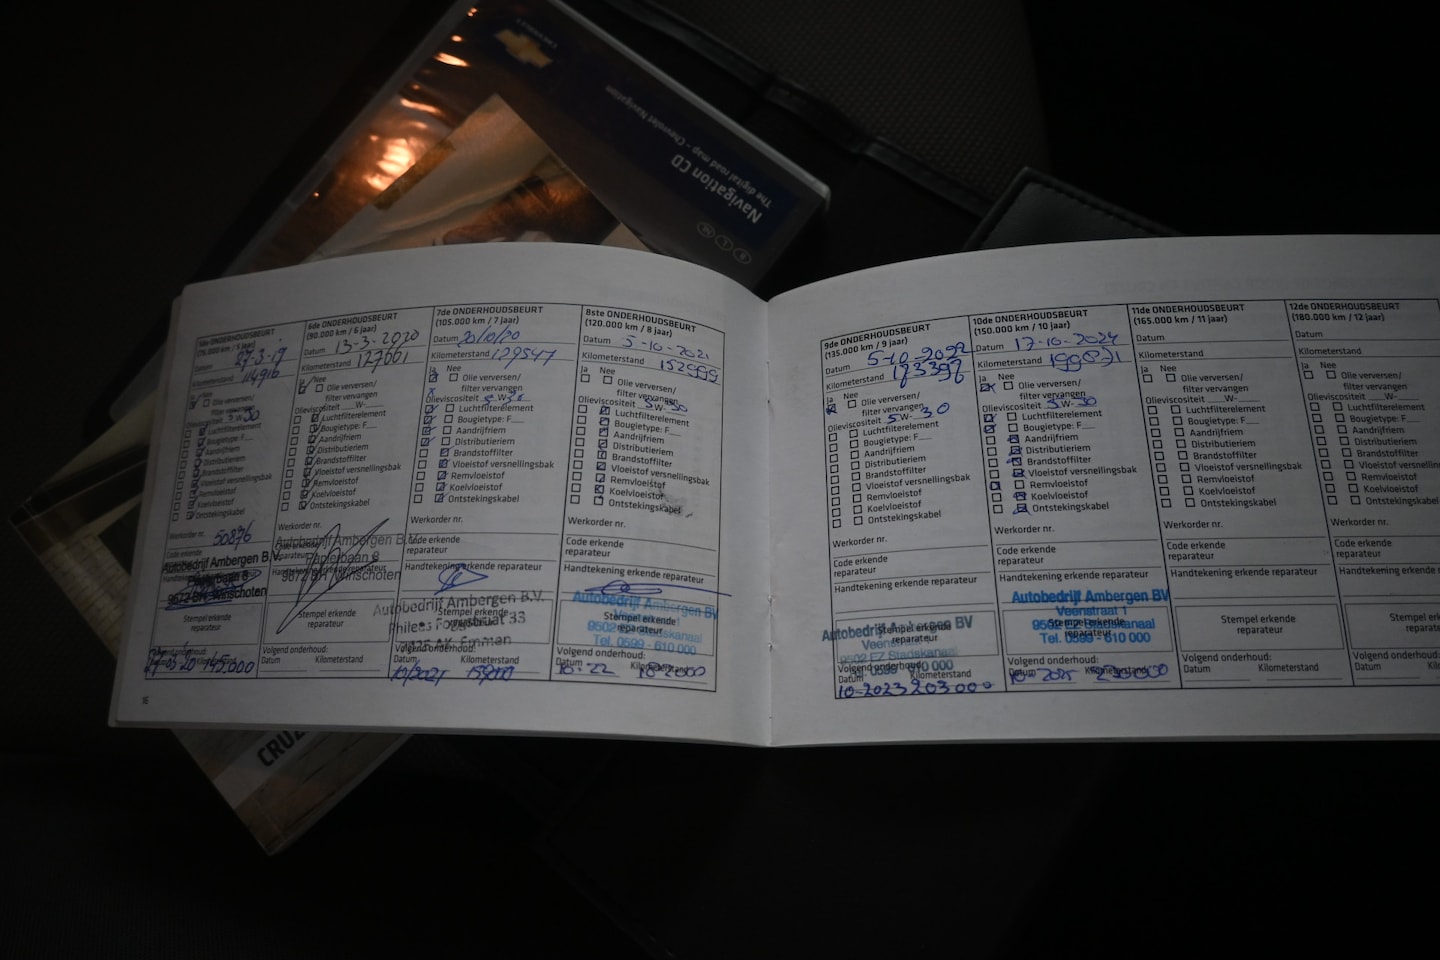 CHEVROLET
The digital road map - Chevrolet Navigation
Navigation CD
CRUZ
5de ONDERHOUDSBEURT
(75.000 km / 5 jaar)
Datum 27-3-19
Kilometerstand 114916
Ja Nee
Olie verversen/
filter vervangen
Olieviscositeit
Luchtfilterelement
Bougietype: F
Aandrijfriem
Distributieriem
Brandstoffilter
Remvloeistof
Koelvloeistof
Ontstekingskabel
Werkorder nr. 50876
Code erkende
Autobedrijf Ambergen B.V.
Papierbaan 8
9672 BH Winschoten
Stempel erkende
reparateur
Datum 145.000
6de ONDERHOUDSBEURT
(90.000 km / 6 jaar)
Datum 13-3-2020
Kilometerstand 127001
Ja Nee
Olie verversen/
filter vervangen
Luchtfilterelement
Bougietype: F
Aandrijfriem
Distributieriem
Brandstoffilter
Vloeistof versnellingsbak
Remvloeistof
Koelvloeistof
Ontstekingskabel
Werkorder nr.
Autobedrijf Ambergen B.V.
Papierbaan 8
9672 BH Winschoten
Stempel erkende
reparateur
Volgend onderhoud:
Datum Kilometerstand
7de ONDERHOUDSBEURT
(105.000 km / 7 jaar)
Datum 20/10/20
Kilometerstand 129547
Ja Nee
Olie verversen/
filter vervangen
Olieviscositeit 5 W- 30
Luchtfilterelement
Bougietype: F
Aandrijfriem
Distributieriem
Brandstoffilter
Vloeistof versnellingsbak
Remvloeistof
Koelvloeistof
Ontstekingskabel
Werkorder nr.
Code erkende
reparateur
Handtekening erkende reparateur
Autobedrijf Ambergen B.V.
Stempel erkende
reparateur
Emmen
Volgend onderhoud:
Datum Kilometerstand
10/2021
8ste ONDERHOUDSBEURT
(120.000 km / 8 jaar)
Datum 5-10-2021
Kilometerstand 152999
Ja Nee
Olie verversen/
filter vervangen
Olieviscositeit 5 W- 30
Luchtfilterelement
Bougietype: F
Aandrijfriem
Distributieriem
Brandstoffilter
Vloeistof versnellingsbak
Remvloeistof
Koelvloeistof
Ontstekingskabel
Werkorder nr.
Code erkende
reparateur
Handtekening erkende reparateur
Autobedrijf Ambergen BV
Stempel erkende
reparateur
9502 EZ Stadskanaal
Tel. 0599 - 610 000
Volgend onderhoud:
Datum Kilometerstand
10-22
16
9de ONDERHOUDSBEURT
(135.000 km / 9 jaar)
Datum 5-10-2022
Kilometerstand 173396
Ja Nee
Olie verversen/
filter vervangen
Olieviscositeit 5 W- 30
Luchtfilterelement
Bougietype: F
Aandrijfriem
Distributieriem
Brandstoffilter
Vloeistof versnellingsbak
Remvloeistof
Koelvloeistof
Ontstekingskabel
Werkorder nr.
Code erkende
reparateur
Handtekening erkende reparateur
Autobedrijf Ambergen BV
Stempel erkende
reparateur
9502 EZ Stadskanaal
Volgend onderhoud:
Datum Kilometerstand
10-2023 203000
10de ONDERHOUDSBEURT
(150.000 km / 10 jaar)
Datum 17-10-2024
Kilometerstand 199871
Ja Nee
Olie verversen/
filter vervangen
Olieviscositeit 5 W- 30
Luchtfilterelement
Bougietype: F
Aandrijfriem
Distributieriem
Brandstoffilter
Vloeistof versnellingsbak
Remvloeistof
Koelvloeistof
Ontstekingskabel
Werkorder nr.
Code erkende
reparateur
Handtekening erkende reparateur
Autobedrijf Ambergen BV
Veenstraat 1
9502 EZ Stadskanaal
Stempel erkende
reparateur
Tel. 0599 - 610 000
Volgend onderhoud:
Datum Kilometerstand
10-2025
11de ONDERHOUDSBEURT
(165.000 km / 11 jaar)
Datum
Kilometerstand
Ja Nee
Olie verversen/
filter vervangen
Olieviscositeit W-
Luchtfilterelement
Bougietype: F
Aandrijfriem
Distributieriem
Brandstoffilter
Vloeistof versnellingsbak
Remvloeistof
Koelvloeistof
Ontstekingskabel
Werkorder nr.
Code erkende
reparateur
Handtekening erkende reparateur
Stempel erkende
reparateur
Volgend onderhoud:
Datum Kilometerstand
12de ONDERHOUDSBEURT
(180.000 km / 12 jaar)
Datum
Kilometerstand
Ja Nee
Olie verversen/
filter vervangen
Olieviscositeit W-
Luchtfilterelement
Bougietype: F
Aandrijfriem
Distributieriem
Brandstoffilter
Vloeistof versnellin
Remvloeistof
Koelvloeistof
Ontstekingskabel
Werkorder nr.
Code erkende
reparateur
Handtekening erkende re
Stempel erkende
reparateur
Volgend onderhoud:
Datum Kilometerstand